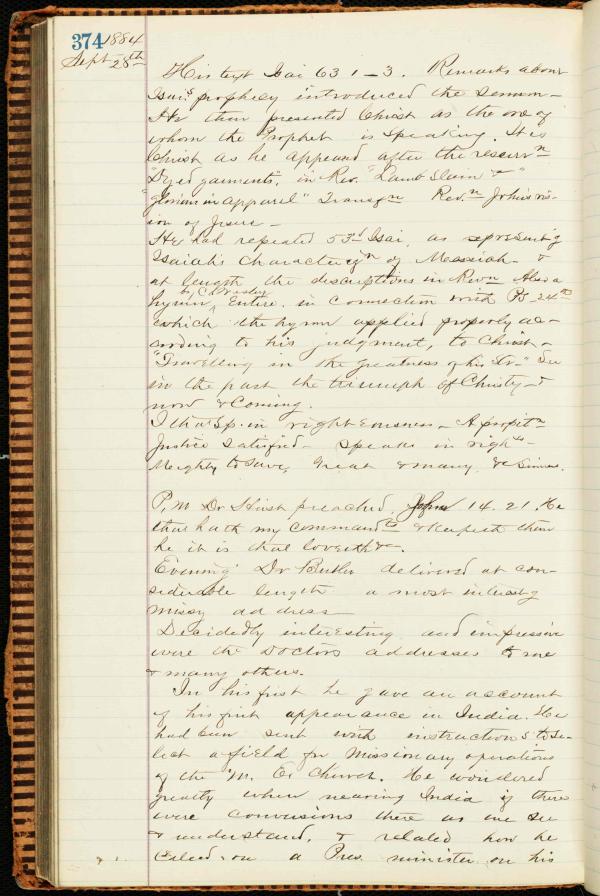 374 1884
Sept 28th
His text Isai 63 1-3. Remarks about
Isai's prophecy introduced the sermon-
He then presented Christ as the one of
whom the Prophet is speaking. It is
Christ as he appeared after the resurrn
"Dyed garments", in Rev. "Lamb Slain &c"
"glorious in apparel" Transfgn Revn John's vis-
ion of Jesus-
He had repeated 53d Isai, as representing
Isaiah's Charactergn of Messiah- &
at length the descriptions in Revn Also a
by C. Wesley
hymn, Entire, in connection with Ps 24th
which the hymn applied properly ac-
cording to his judgment, to Christ-
"Travelling in the greatness of his Str-" See
in the past the triumph of Christy- &
now & Coming.
I that Sp. in righteousness- A propitn
Justice satisfied- Speaks in righ
Mighty to Save, Great & many, &c Sinners.
P.M Dr Hurst preached, John 14. 21. He
that hath my commandts & keepeth them
he it is that loveth &c-
Evening Dr Butler delivered at con-
siderable length a most interestg
missy address-
Decidedly interesting and impressive
were the Doctors addresses to me
& many others.
In his first he gave an account
of his first appearance in India. He
had been sent with instructions to se-
lect a field for Missionary operations
of the M. E. Church. He wondered
greatly when nearing India if there
were conversions there as we see
& understand, & related how he
called on a Pres. minister on his